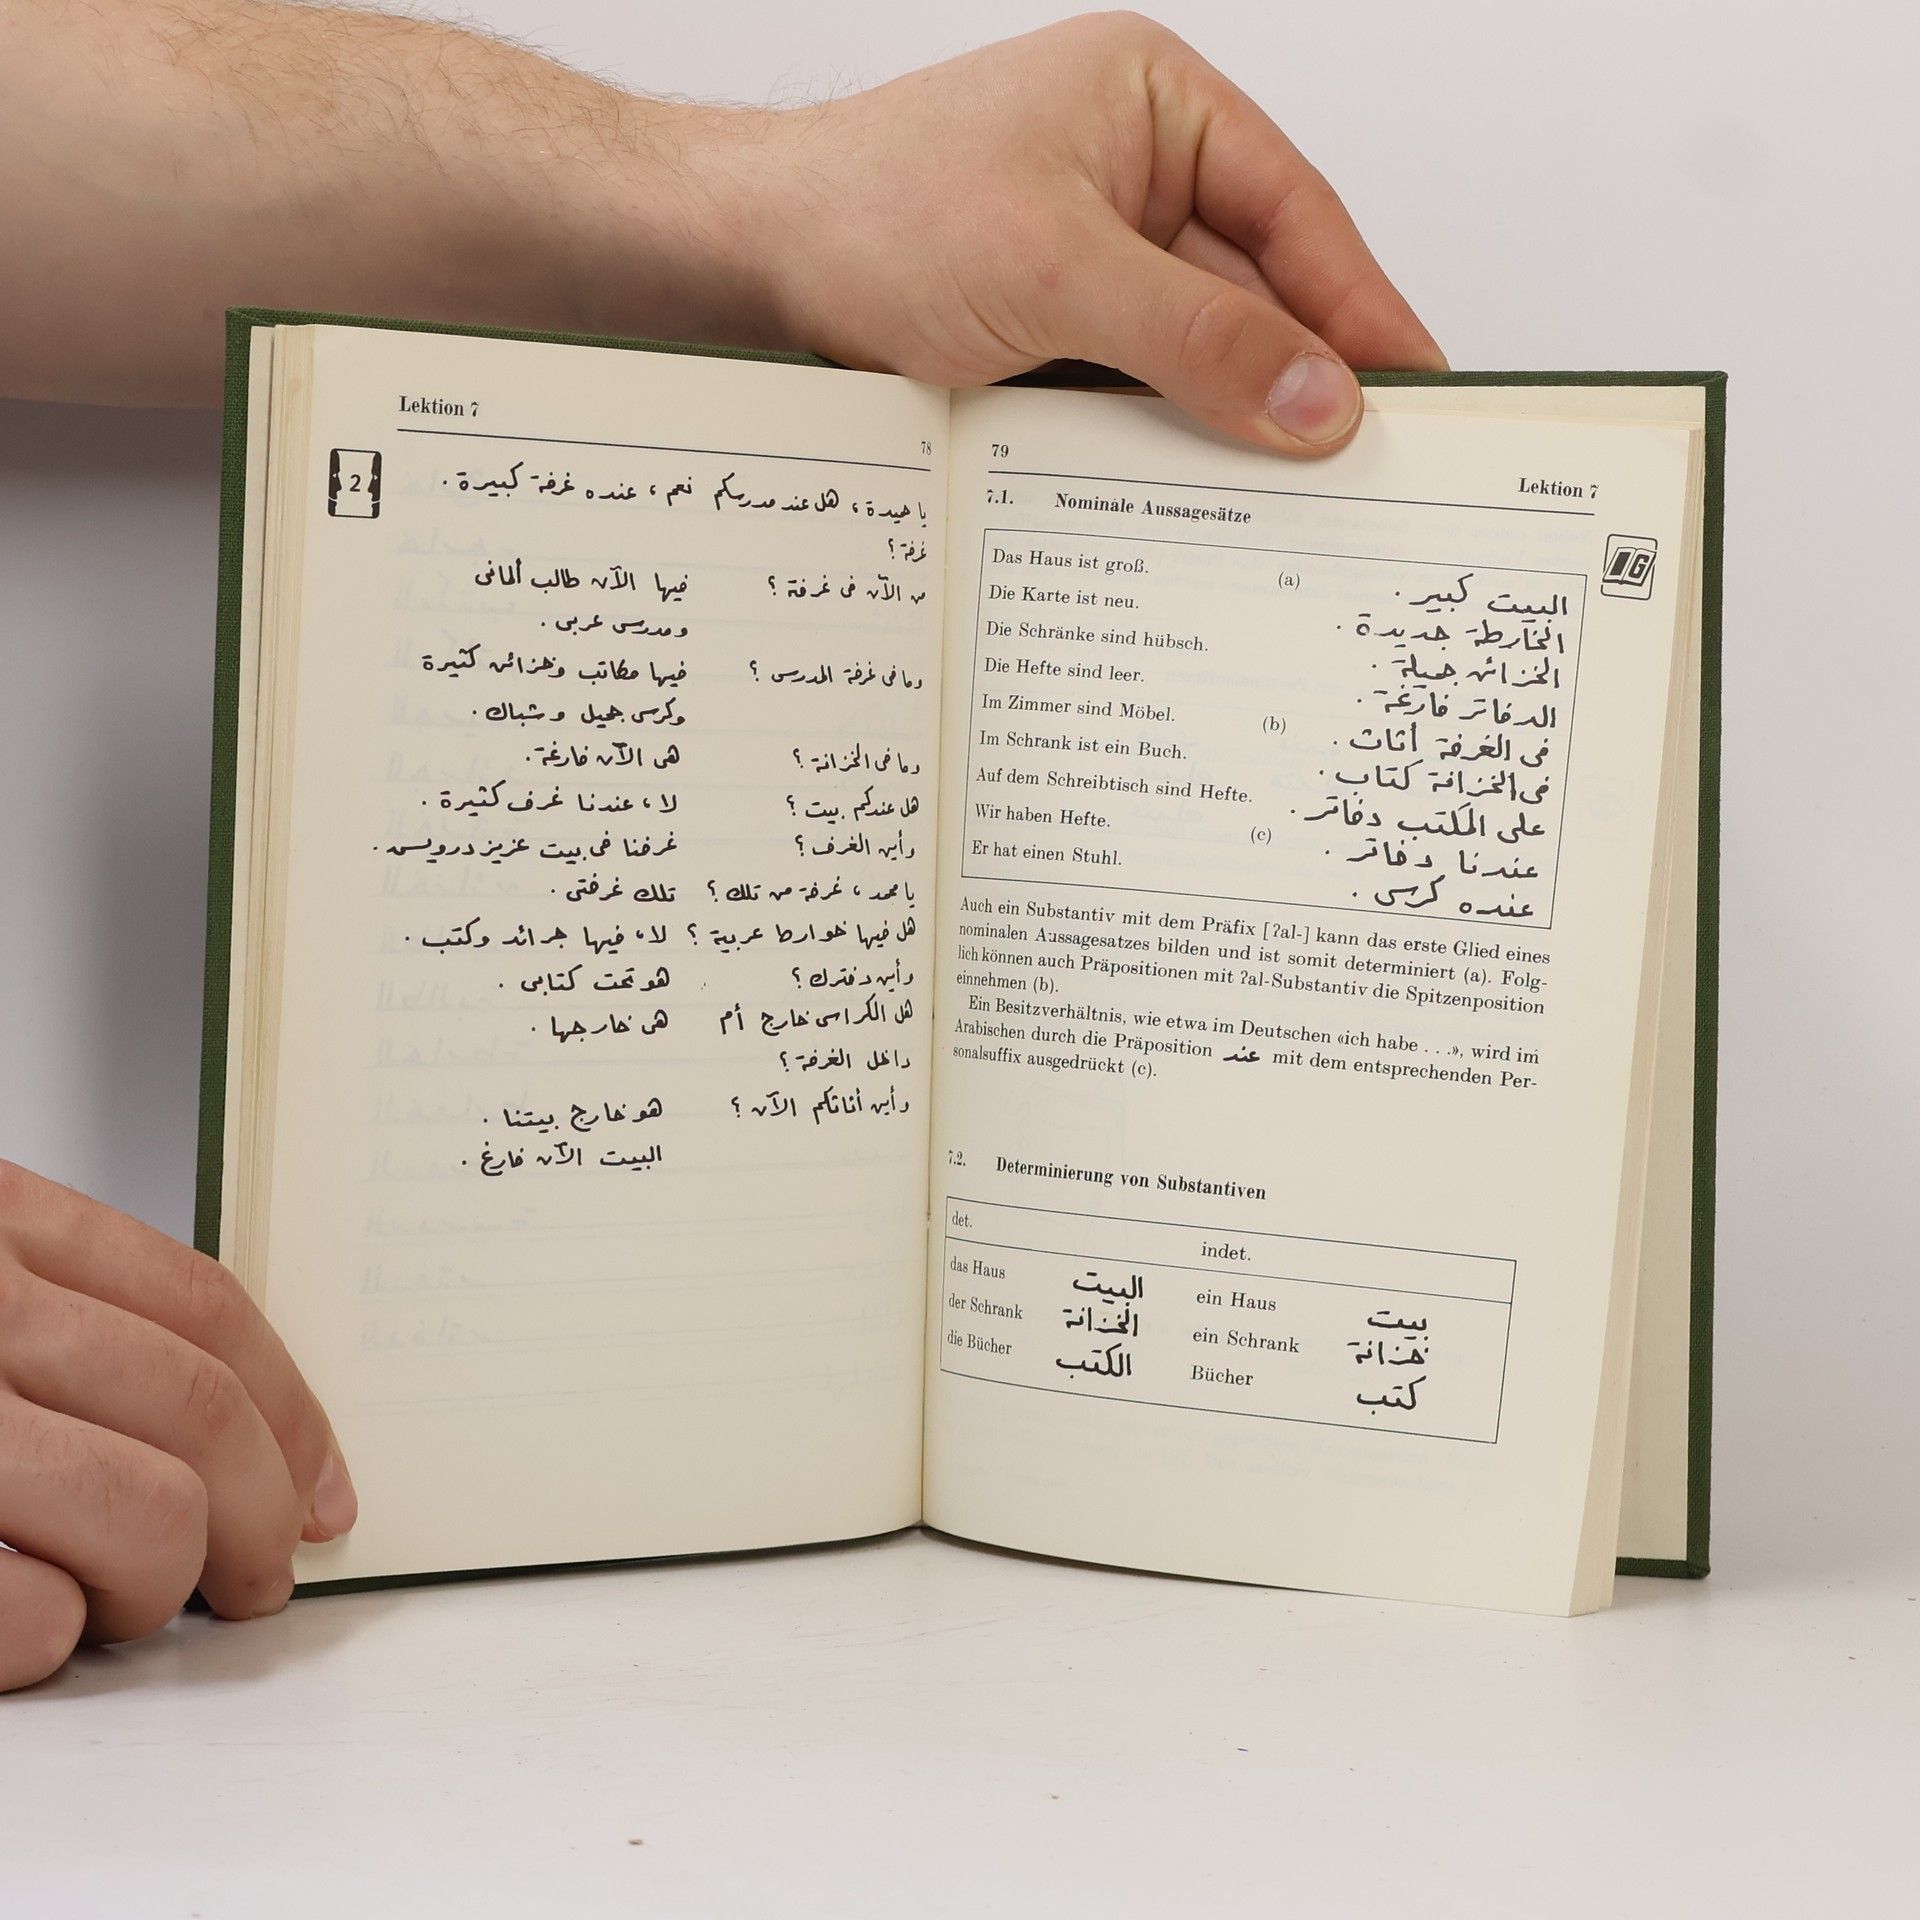 Lektion 7
78
2
يا حميدة، هل عند مدرسكم نعم، عنده غرفة كبيرة.
غرفة؟
من الآن فى غرفة؟ فيها الآن طالب ألمانى
ومدرس عربى.
وما فى غرفة المدرس؟ فيها مكاتب وخزائن كثيرة
وكرسى جميل وشباك.
وما فى الخزانة؟ هى الآن فارغة.
هل عندكم بيت؟ لا، عندنا غرف كثيرة.
وأين الغرف؟ غرفنا فى بيت عزيز درويس.
يا محمد، غرفة من تلك؟ تلك غرفتى.
هل فيها خوارط عربية؟ لا، فيها جرائد وكتب.
وأين دفترك؟ هو تحت كتابى.
هل الكراسى خارج أم هى خارجها.
داخل الغرفة؟
وأين أثاثكم الآن؟ هو خارج بيتنا.
البيت الآن فارغ.
79
Lektion 7
7.1. Nominale Aussagesätze
G
Das Haus ist groß. (a) البيت كبير.
Die Karte ist neu. الخارطة جديدة.
Die Schränke sind hübsch. الخزائن جميلة.
Die Hefte sind leer. الدفاتر فارغة.
Im Zimmer sind Möbel. (b) فى الغرفة أثاث.
Im Schrank ist ein Buch. فى الخزانة كتاب.
Auf dem Schreibtisch sind Hefte. على المكتب دفاتر.
Wir haben Hefte. (c) عندنا دفاتر.
Er hat einen Stuhl. عنده كرسى.
Auch ein Substantiv mit dem Präfix [ʔal-] kann das erste Glied eines
nominalen Aussagesatzes bilden und ist somit determiniert (a). Folg-
lich können auch Präpositionen mit ʔal-Substantiv die Spitzenposition
einnehmen (b).
Ein Besitzverhältnis, wie etwa im Deutschen «ich habe . . .», wird im
Arabischen durch die Präposition عند mit dem entsprechenden Per-
sonalsuffix ausgedrückt (c).
7.2. Determinierung von Substantiven
det. indet.
das Haus البيت ein Haus بيت
der Schrank الخزانة ein Schrank خزانة
die Bücher الكتب Bücher كتب